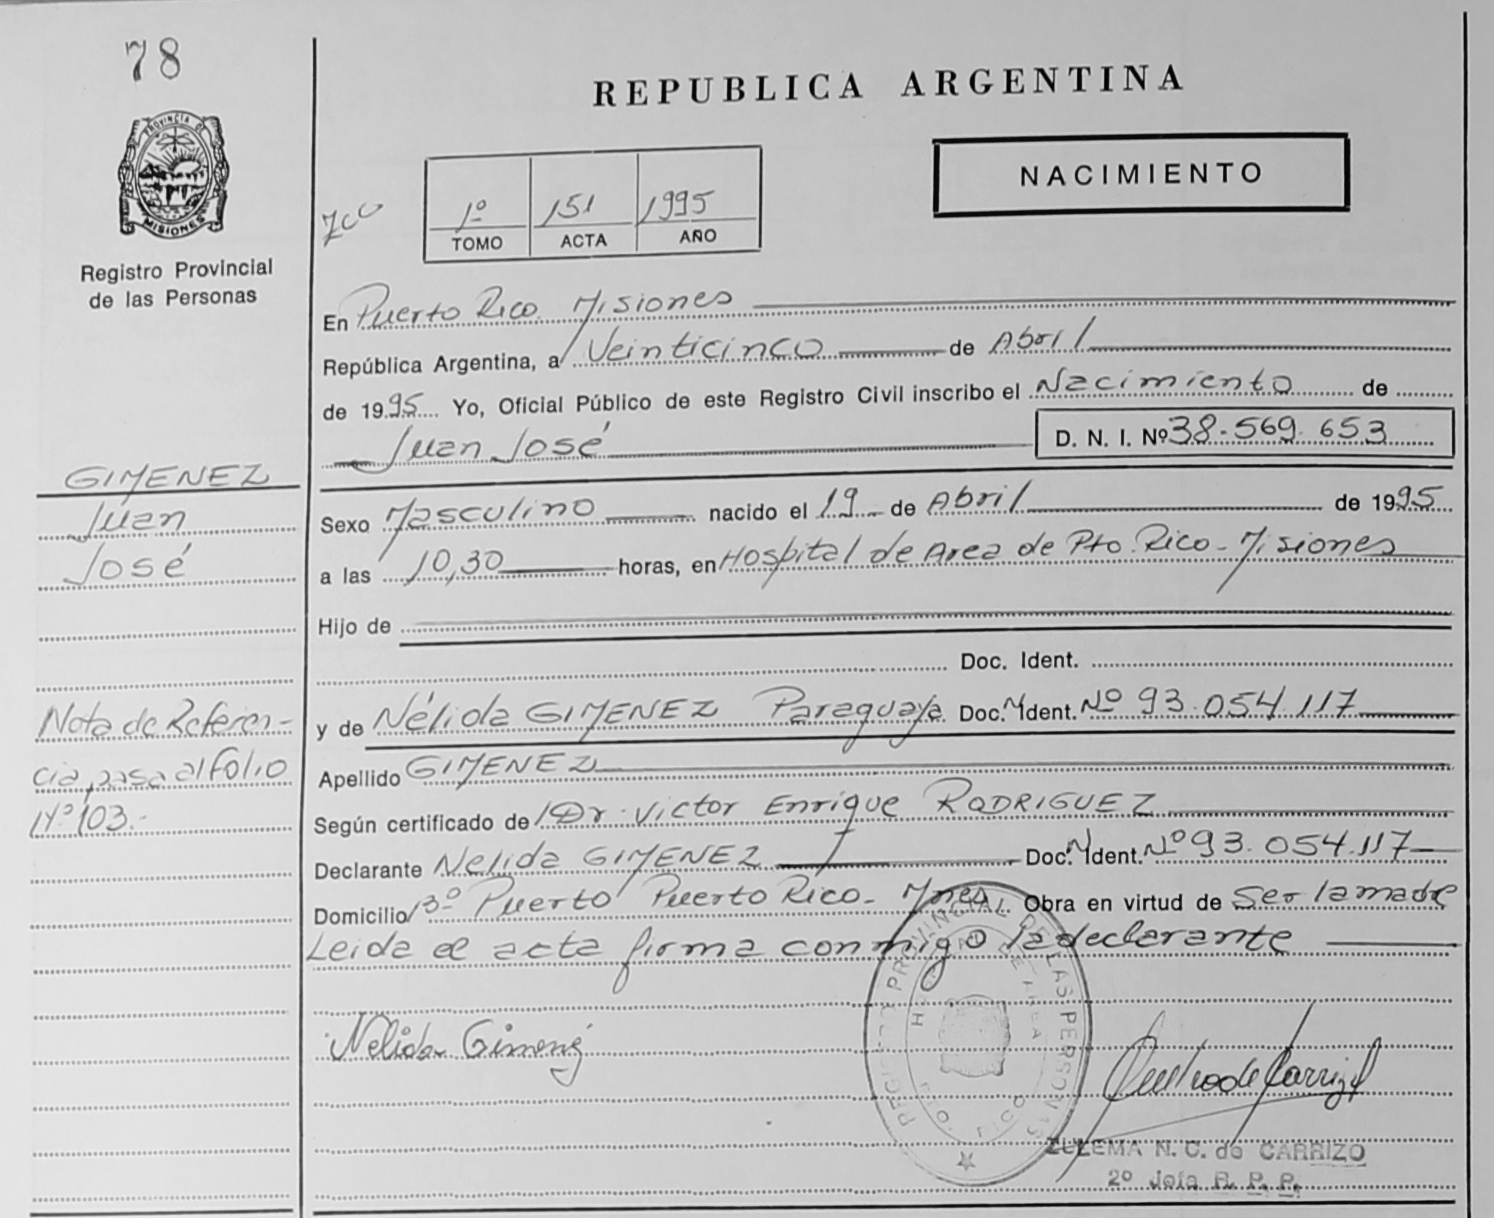 78
REPUBLICA ARGENTINA
NACIMIENTO
PROVINCIA DE
MISIONES
Registro Provincial
de las Personas
1º 151 1995
TOMO ACTA AÑO
En Puerto Rico. Misiones
República Argentina, a Veinticinco de Abril
de 1995 Yo, Oficial Público de este Registro Civil inscribo el Nacimiento de
Juan José
D. N. I. Nº 38.569.653
GIMENEZ
Juan
José
Sexo Masculino nacido el 19 de Abril de 1995
a las 10,30 horas, en Hospital de Area de Pto. Rico - Misiones
Hijo de
Doc. Ident.
y de Nélida GIMENEZ Paraguaya Doc. Ident. Nº 93.054.117
Nota de Referen-
cia pasa al folio
Nº 103.-
Apellido GIMENEZ
Según certificado de Dr. Victor Enrique RODRIGUEZ
Declarante Nelida GIMENEZ Doc. Ident. Nº 93.054.117
Domicilio 3º Puerto Puerto Rico - Mnes. Obra en virtud de Ser la madre
Leida el acta firma conmigo la declarante
Nelida Gimenez
REGISTRO PROVINCIAL DE LAS PERSONAS
HOSPITAL DE AREA
PTO. RICO
ZULEMA N. C. de CARRIZO
2º Jefa R. P. P.